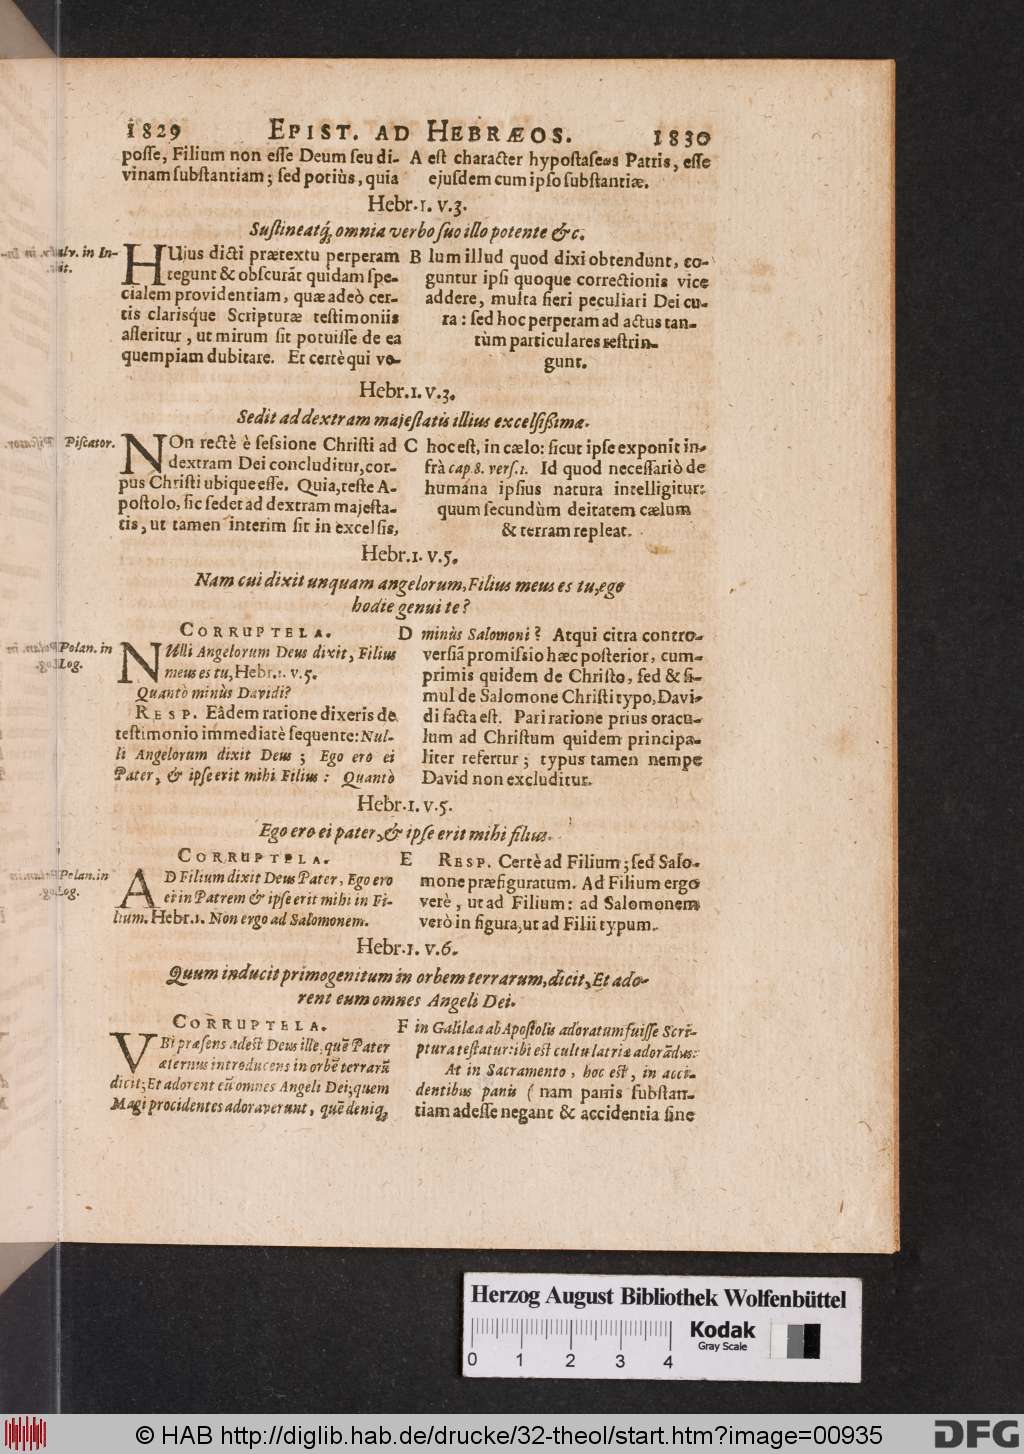 1829 EPIST. AD HEBRÆOS. 1830
posse, Filium non esse Deum seu di-
vinam substantiam; sed potiùs, quia
A est character hypostaseωs Patris, esse
ejusdem cum ipso substantiæ.
Hebr. 1. v. 3.
Sustineatq́; omnia verbo suo illo potente &c.
Calv. in In-
stit.
HUjus dicti prætextu perperam
tegunt & obscurāt quidam spe-
cialem providentiam, quæ adeò cer-
tis clarisque Scripturæ testimoniis
asseritur, ut mirum sit potuisse de ea
quempiam dubitare. Et certè qui ve-
B lum illud quod dixi obtendunt, co-
guntur ipsi quoque correctionis vice
addere, multa fieri peculiari Dei cu-
ra: sed hoc perperam ad actus tan-
tùm particulares restrin-
gunt.
Hebr. 1. v. 3.
Sedit ad dextram majestatis illius excelsissimæ.
Piscator.
NOn rectè è sessione Christi ad
dextram Dei concluditur, cor-
pus Christi ubique esse. Quia, teste A-
postolo, sic sedet ad dextram majesta-
tis, ut tamen interim sit in excelsis,
C hoc est, in cælo: sicut ipse exponit in-
frà cap. 8. vers. 1. Id quod necessariò de
humána ipsius natura intelligitur:
quum secundùm deitatem cælum
& terram repleat.
Hebr. 1. v. 5.
Nam cui dixit unquam angelorum, Filius meus es tu, ego
hodie genui te?
CORRUPTELA.
Polan. in
Log.
NUlli Angelorum Deus dixit, Filius
meus es tu, Hebr. 1. v. 5.
Quantò minùs Davidi?
RESP. Eâdem ratione dixeris de
testimonio immediatè sequente: Nul-
li Angelorum dixit Deus; Ego ero ei
Pater, & ipse erit mihi Filius: Quantò
D minùs Salomoni? Atqui citra contro-
versiā promissio hæc posterior, cum-
primis quidem de Christo, sed & si-
mul de Salomone Christi typo, Davi-
di facta est. Pari ratione prius oracu-
lum ad Christum quidem principa-
liter refertur; typus tamen nempe
David non excluditur.
Hebr. 1. v. 5.
Ego ero ei pater, & ipse erit mihi filius.
CORRUPTELA.
Polan. in
Log.
AD Filium dixit Deus Pater, Ego ero
ei in Patrem & ipse erit mihi in Fi-
lium. Hebr. 1. Non ergo ad Salomonem.
E RESP. Certè ad Filium; sed Salo-
mone præfiguratum. Ad Filium ergo
verè, ut ad Filium: ad Salomonem
verò in figura, ut ad Filii typum.
Hebr. 1. v. 6.
Quum inducit primogenitum in orbem terrarum, dicit, Et ado-
rent eum omnes Angeli Dei.
CORRUPTELA.
VBi præsens adest Deus ille, quē Pater
æternus introducens in orbē terrarū
dicit; Et adorent eū omnes Angeli Dei; quem
Magi procidentes adoraverunt, quē deniq́;
F in Galilæa ab Apostolis adoratum fuisse Scri-
ptura testatur: ibi est cultu latriæ adorādus:
At in Sacramento, hoc est, in acci-
dentibus panis (nam panis substan-
tiam adesse negant & accidentia sine
Herzog August Bibliothek Wolfenbüttel
Kodak
Gray Scale
0 1 2 3 4
© HAB http://diglib.hab.de/drucke/32-theol/start.htm?image=00935
DFG